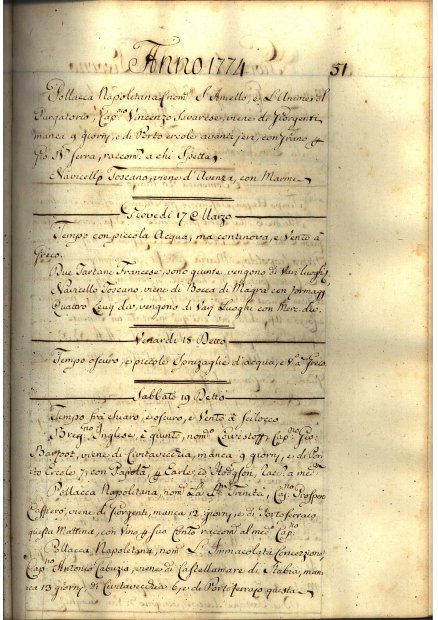 Anno 1774 51
Pollacca Napoletana, nom.ᵗᵃ S. Aniello, e L'Anime del
Purgatorio, Cap.ⁿᵒ Vincenzo Savarese, viene di Giorgenti,
manca 9 giorni, e di Porto ercole avanti jeri, con Grano, à
Gio. Serra, raccom.ᵗᵃ a chi Spetta,
Navicello Toscano, viene d'Avenza, con Marmi,
Giovedi 17 Marzo
Tempo con piccola Acqua, ma continova, e Vento à
Greco.
Due Tartane Francese, sono quinte, vengono di Varj luoghi,
Navicello Toscano, viene di Bocca di Magra con formagg.
Quattro Leuti div. vengono di Varj Luoghi con Merc. div.
Venerdi 18 Detto
Tempo oscuro, e piccole Spruzaglie d'acqua, e V.ᵗᵒ à Greco
Sabbato 19 Detto
Tempo frà chiaro, e oscuro, e Vento à Scilocco
Brig.ⁿᵒ Inglese, è giunto, nom.ᵗᵒ Cap.ⁿᵒ Gio:
viene di Civitavecchia, manca 9 giorni, e di Por-
to Ercole 7, con à Earle, ed Hodgson, racc. a med.
Pollacca Napolitana, nom.ᵗᵃ La SS. Trinità, Cap.ⁿᵒ Prospero
Caffiero, viene di Giorgenti, manca 12 giorni, e di Portoferraro
questa Mattina, con Vino, à suo Conto raccom. al med. Cap.ⁿᵒ
Pollacca Napoletana, nom.ᵗᵃ L'Immacolata Concezzione
Cap.ⁿᵒ Antonio viene di Castellamare di Stabia, man-
ca 13 giorni, di Civitavecchia 6, e di Portoferraro questa